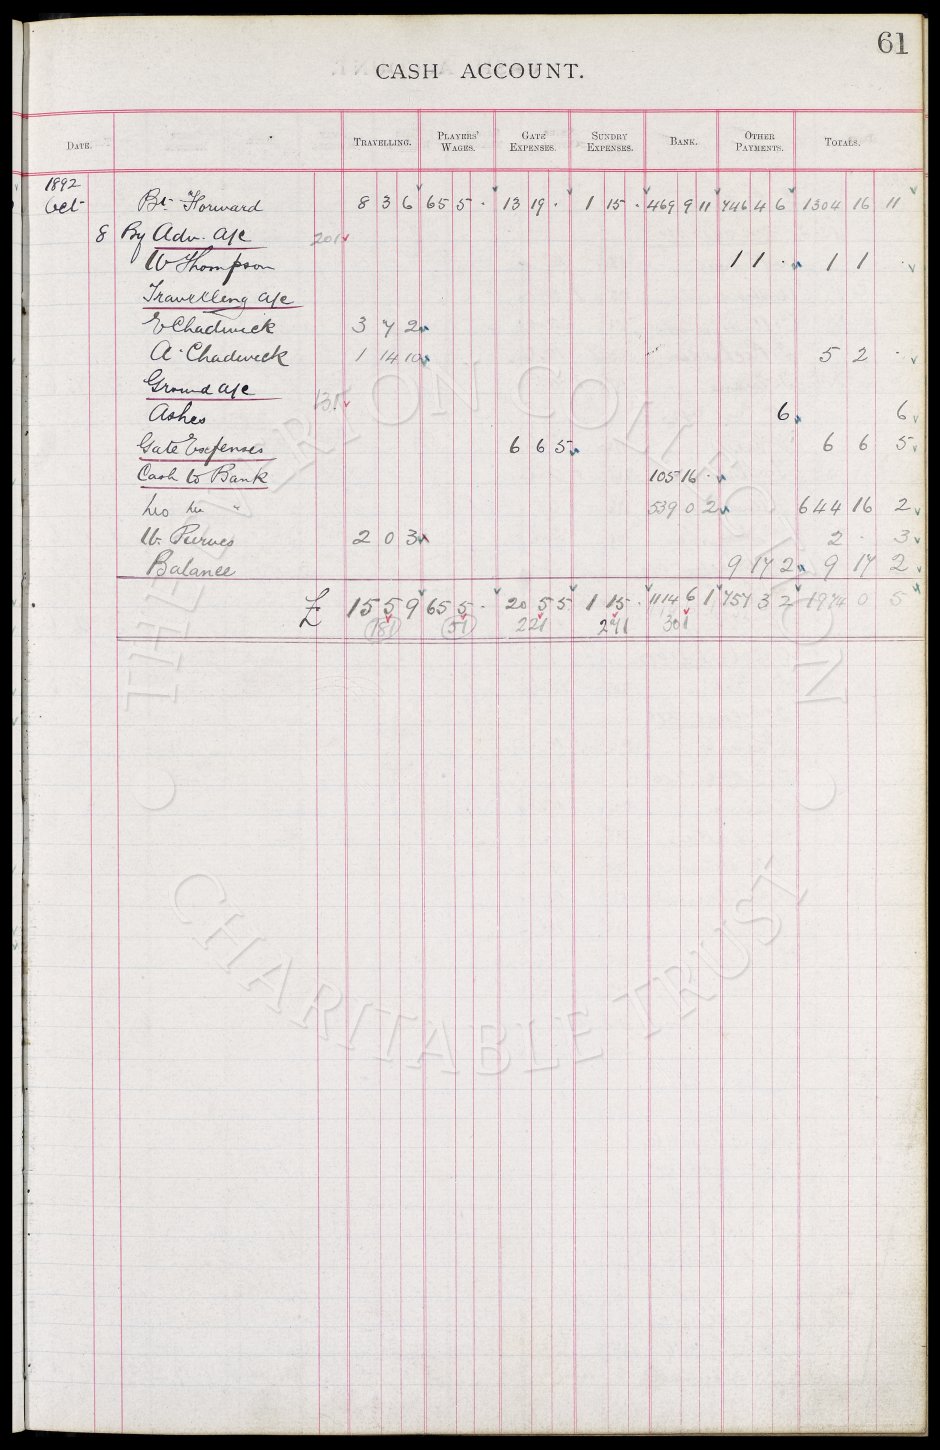 61
CASH ACCOUNT.
DATE. TRAVELLING. PLAYERS' WAGES. GATE EXPENSES. SUNDRY EXPENSES. BANK. OTHER PAYMENTS. TOTALS.
1892
Oct Bt Forward 8 3 6 65 5 . 13 19 . 1 15 . 469 9 11 746 4 6 1304 16 11
8 By Adv. a/c 201
W Thompson 1 1 . 1 1 .
Travelling a/c
E Chadwick 3 7 2
A. Chadwick 1 14 10 5 2 .
Ground a/c 131
Ashes 6 6
Gate Expenses 6 6 5 6 6 5
Cash to Bank 105 16 .
539 0 2 644 16 2
W. Purves 2 0 3 2 . 3
Balance 9 17 2 9 17 2
£ 15 5 9 65 5 . 20 5 5 1 15 . 1114 6 1 757 3 2 1974 0 5
181 51 221 241 301
THE EVERTON COLLECTION
CHARITABLE TRUST